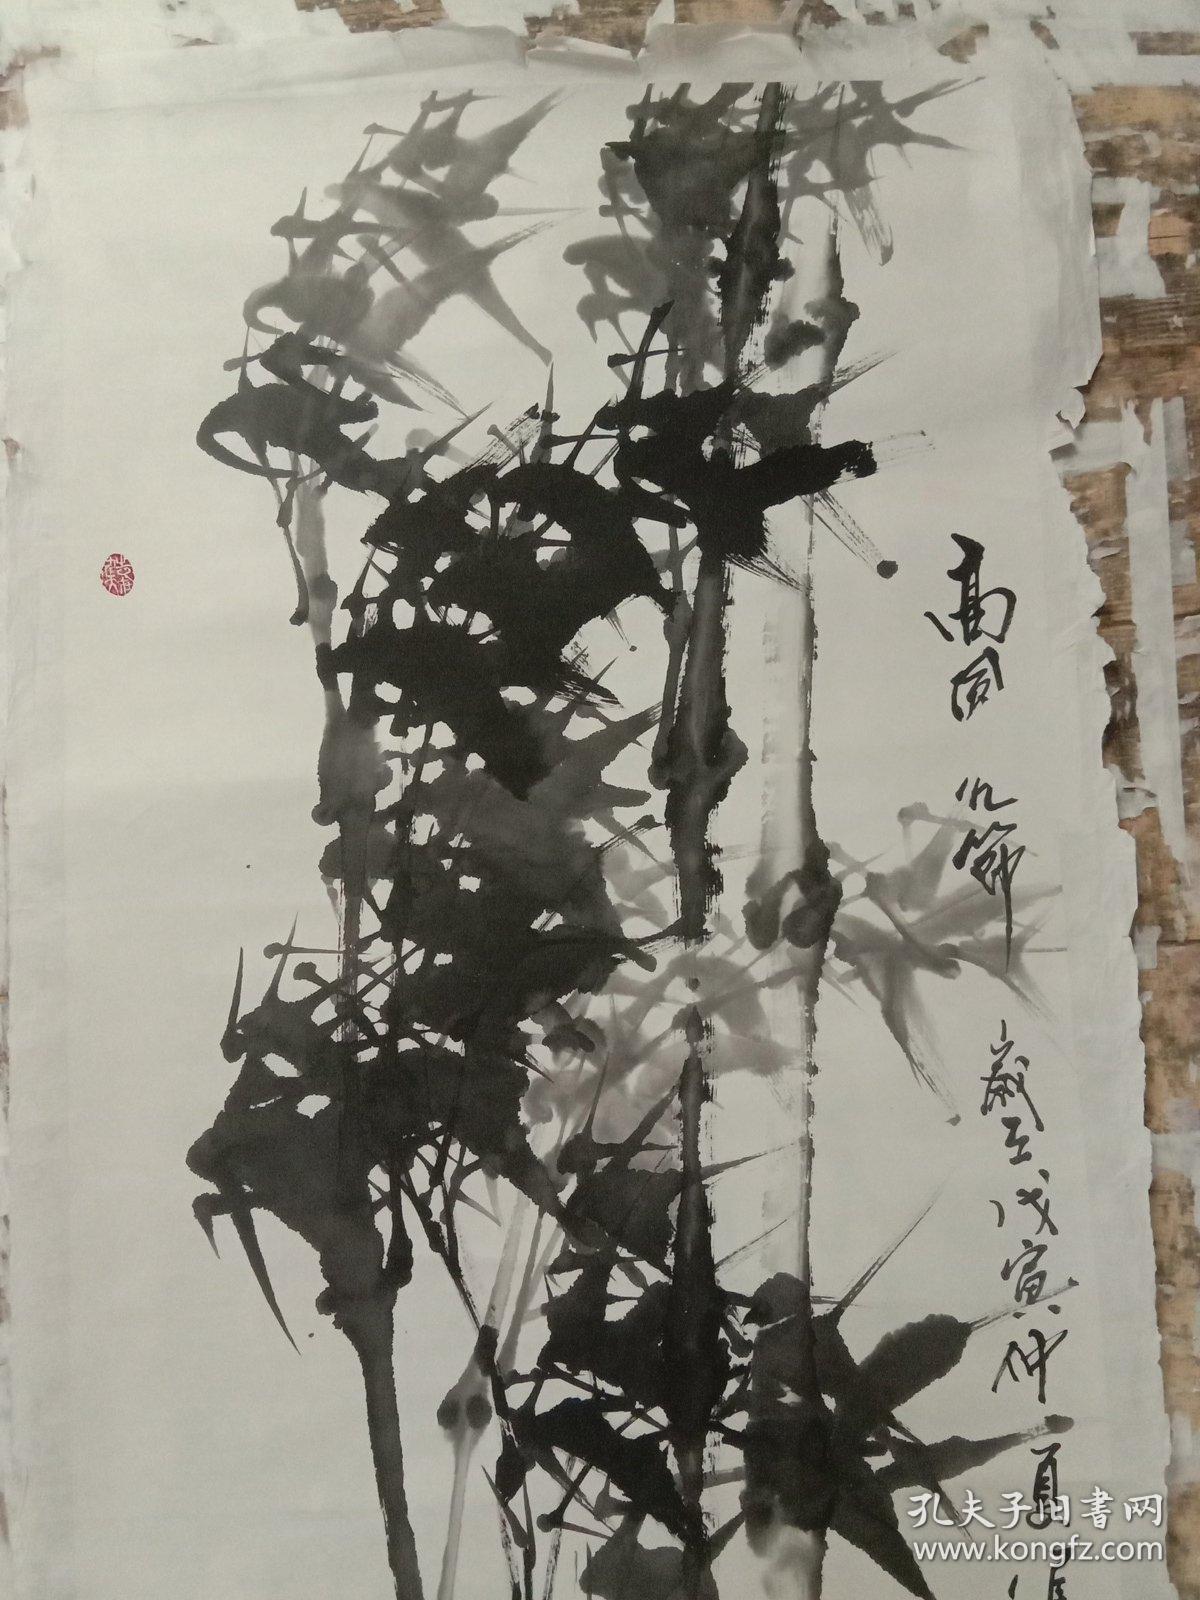 高風
節
歲在戊寅仲夏
孔夫子旧书网
www.kongfz.com